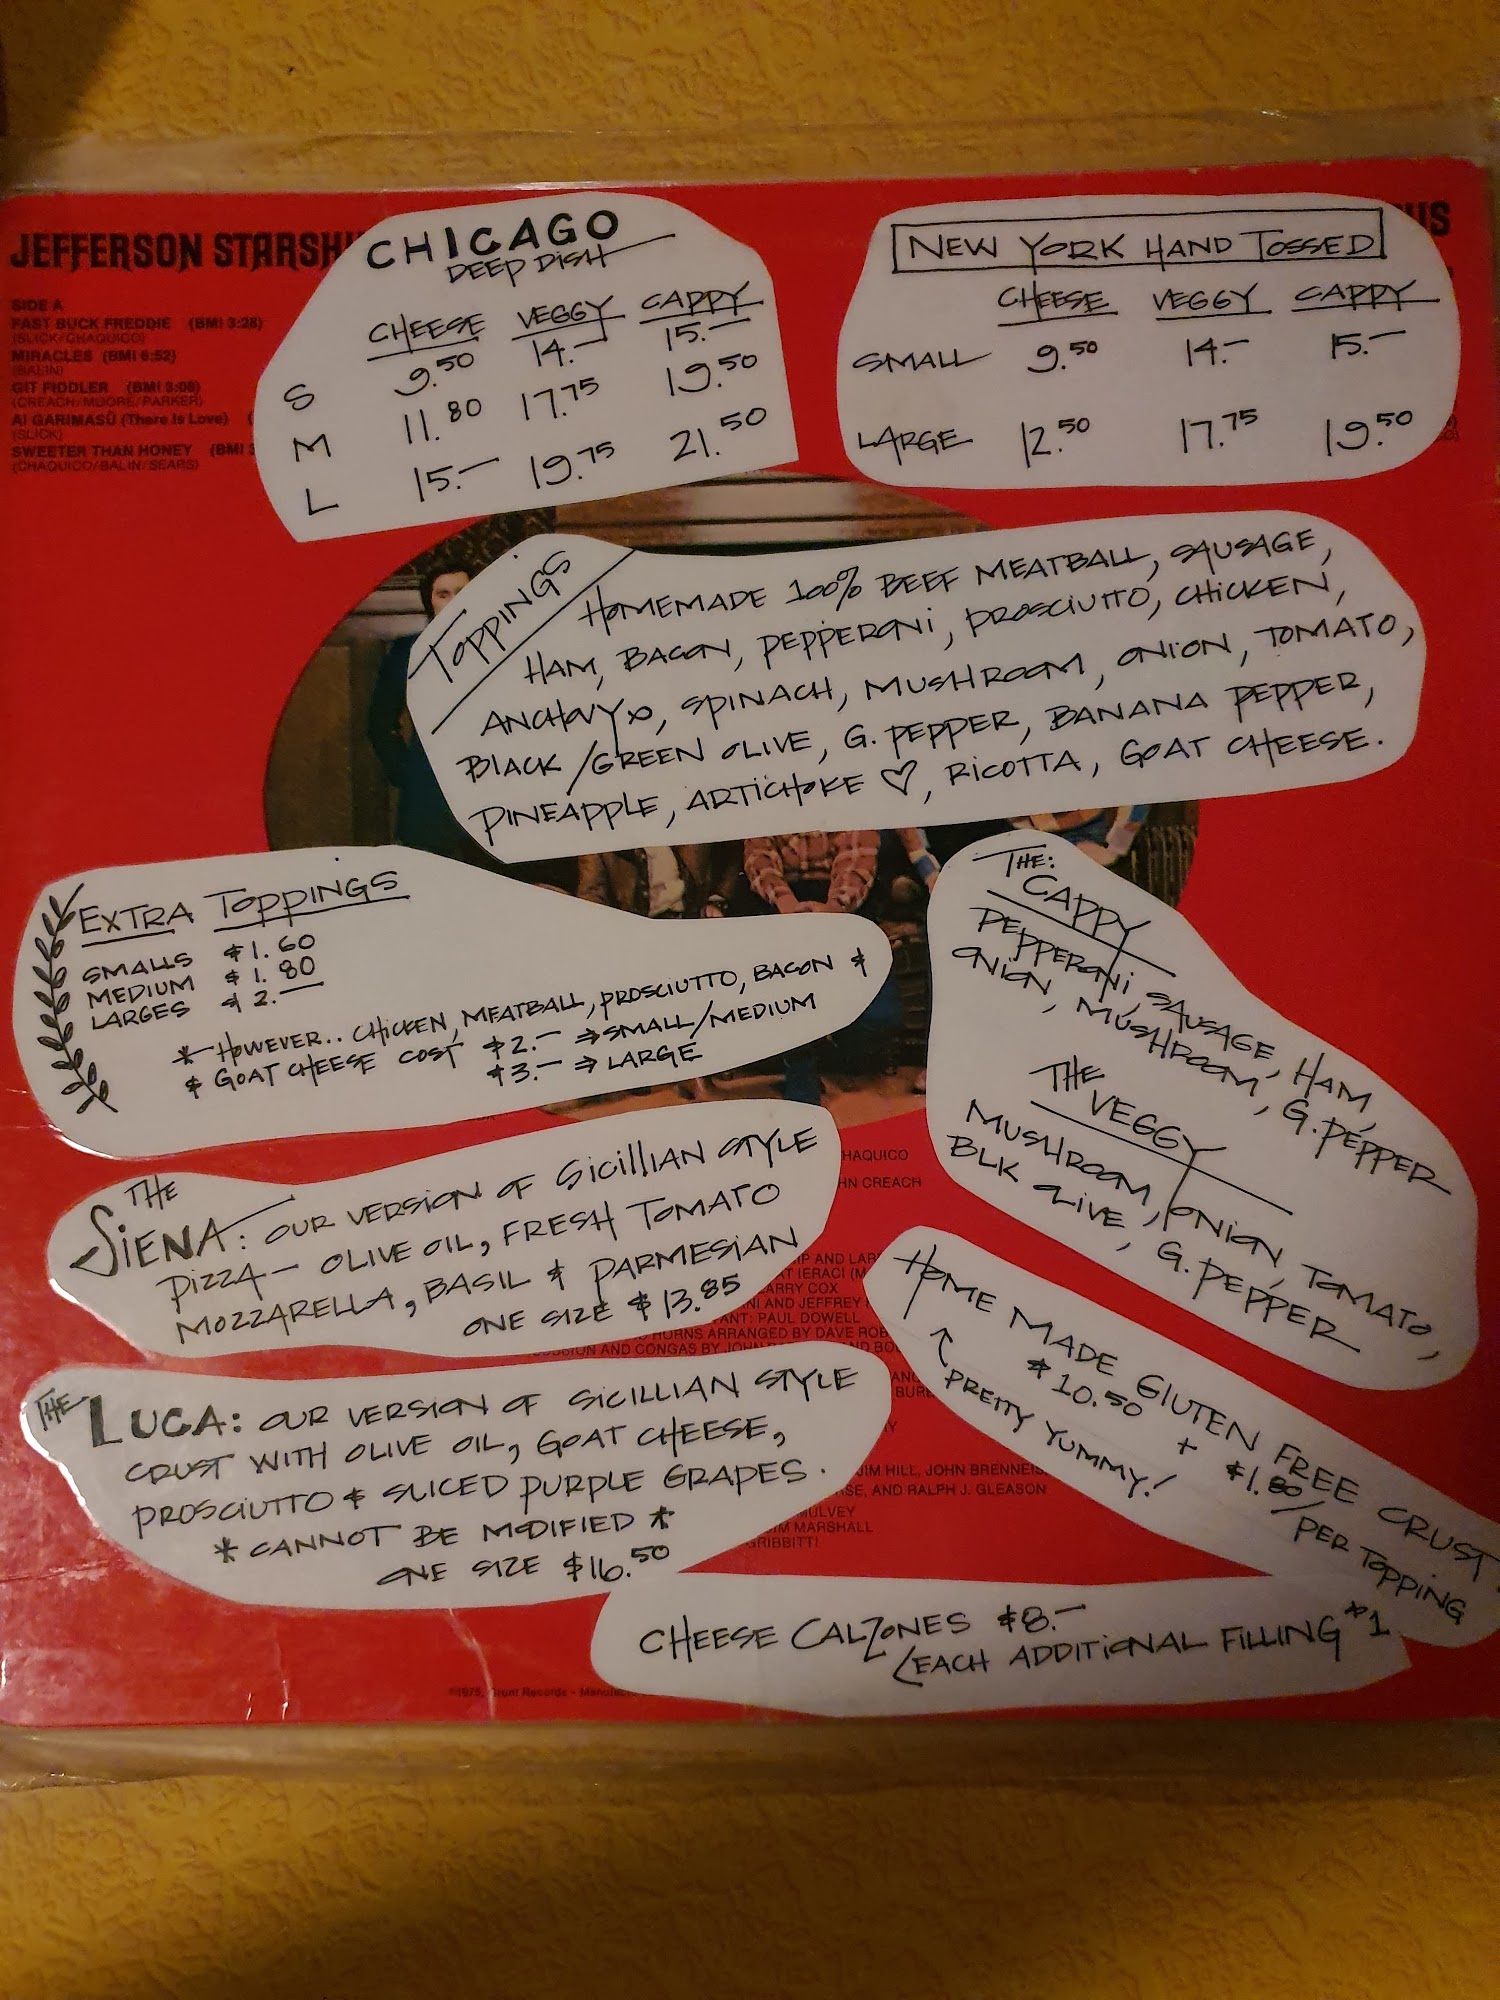 JEFFERSON STARSHI
US
SIDE A
FAST BUCK FREDDIE (BMI 3:28)
(SLICK/CHAQUICO)
MIRACLES (BMI 6:52)
(BALIN)
GIT FIDDLER (BMI 3:08)
(CREACH/MOORE/PARKER)
AI GARIMASŪ (There Is Love) (
(SLICK)
SWEETER THAN HONEY (BMI 3
(CHAQUICO/BALIN/SEARS)
CHICAGO
DEEP DISH
CHEESE VEGGY CAPPY
S 9.50 14.— 15.—
M 11.80 17.75 19.50
L 15.— 19.75 21.50
NEW YORK HAND TOSSED
CHEESE VEGGY CAPPY
SMALL 9.50 14.— 15.—
LARGE 12.50 17.75 19.50
TOPPINGS
HOMEMADE 100% BEEF MEATBALL, SAUSAGE,
HAM, BACON, PEPPERONI, PROSCIUTTO, CHICKEN,
ANCHOVY, SPINACH, MUSHROOM, ONION, TOMATO,
BLACK/GREEN OLIVE, G. PEPPER, BANANA PEPPER,
PINEAPPLE, ARTICHOKE ♡, RICOTTA, GOAT CHEESE.
EXTRA TOPPINGS
SMALLS $1.60
MEDIUM $1.80
LARGES $2.—
* HOWEVER.. CHICKEN, MEATBALL, PROSCIUTTO, BACON &
& GOAT CHEESE COST $2.— ⇒ SMALL/MEDIUM
$3.— ⇒ LARGE
THE:
CAPPY
PEPPERONI, SAUSAGE, HAM,
ONION, MUSHROOM, G. PEPPER
THE
VEGGY
MUSHROOM, ONION, TOMATO,
BLK OLIVE, G. PEPPER
THE
SIENA: OUR VERSION OF SICILLIAN STYLE
PIZZA — OLIVE OIL, FRESH TOMATO
MOZZARELLA, BASIL & PARMESIAN
ONE SIZE $13.85
THE LUCA: OUR VERSION OF SICILLIAN STYLE
CRUST WITH OLIVE OIL, GOAT CHEESE,
PROSCIUTTO & SLICED PURPLE GRAPES.
* CANNOT BE MODIFIED *
ONE SIZE $16.50
HOME MADE GLUTEN FREE CRUST
$10.50 + $1.80/PER TOPPING
PRETTY YUMMY!
CHEESE CALZONES $8.—
(EACH ADDITIONAL FILLING $1
HAQUICO
HN CREACH
IP AND LAR
AT IERACI (M
ARRY COX
NI AND JEFFREY
ANT: PAUL DOWELL
HORNS ARRANGED BY DAVE ROB
AND CONGAS BY JOHN
JIM HILL, JOHN BRENNEIS,
SE, AND RALPH J. GLEASON
MULVEY
IM MARSHALL
GRIBBITT!
©1975, Grunt Records - Manufact